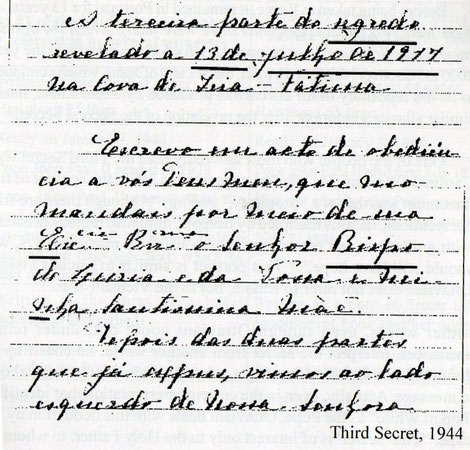 A terceira parte do segredo
revelado a 13 de julho de 1917
na Cova da Iria-Fátima
Escrevo em acto de obediên-
cia a vós Deus meu, que mo
mandais por meio de sua
Ex.cia Rev.ma o Senhor Bispo
de Leiria e da Vossa e mi-
nha Santissima Mãe.
Depois das duas partes
que já expus, vimos ao lado
esquerdo de Nossa Senhora
Third Secret, 1944